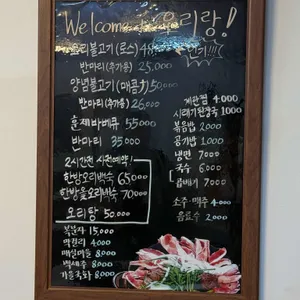 Welcome 오리랑!
오리불고기(로스) 48,000 인기!!!
반마리(추가용) 25,000
양념불고기(매콤) 50,000
반마리(추가용) 26,000
훈제바베큐 55000
반마리 35000
2시간전 사전예약!
한방오리백숙 65000
한방옻오리백숙 70000
오리탕 50,000
복분자 15,000
막걸리 4,000
매실마을 8000
백세주 8000
가을국화 8,000
계란찜 4,000
시래기된장국 1000
볶음밥 2,000
공기밥 1,000
냉면 7000
국수 6,000
곱빼기 7000
소주·맥주 4,000
음료수 2,000